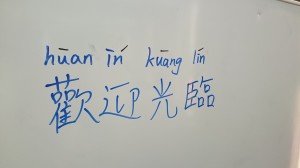 huān íń kuāng lín
歡迎光臨